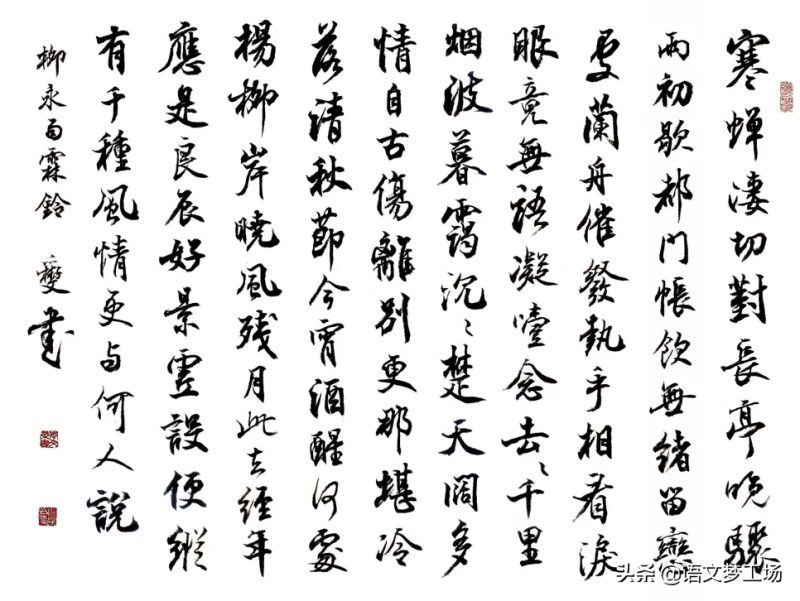 寒蝉淒切對長亭晚驟
雨初歇都門帳飲無緒留戀
处蘭舟催發執手相看淚
眼竟無語凝噎念去々千里
烟波暮靄沉々楚天闊多
情自古傷離別更那堪冷
落清秋節今宵酒醒何處
楊柳岸曉風残月此去經年
應是良辰好景虛設便縱
有千種風情更与何人說
柳永雨霖鈴 書
头条 @语文梦工场